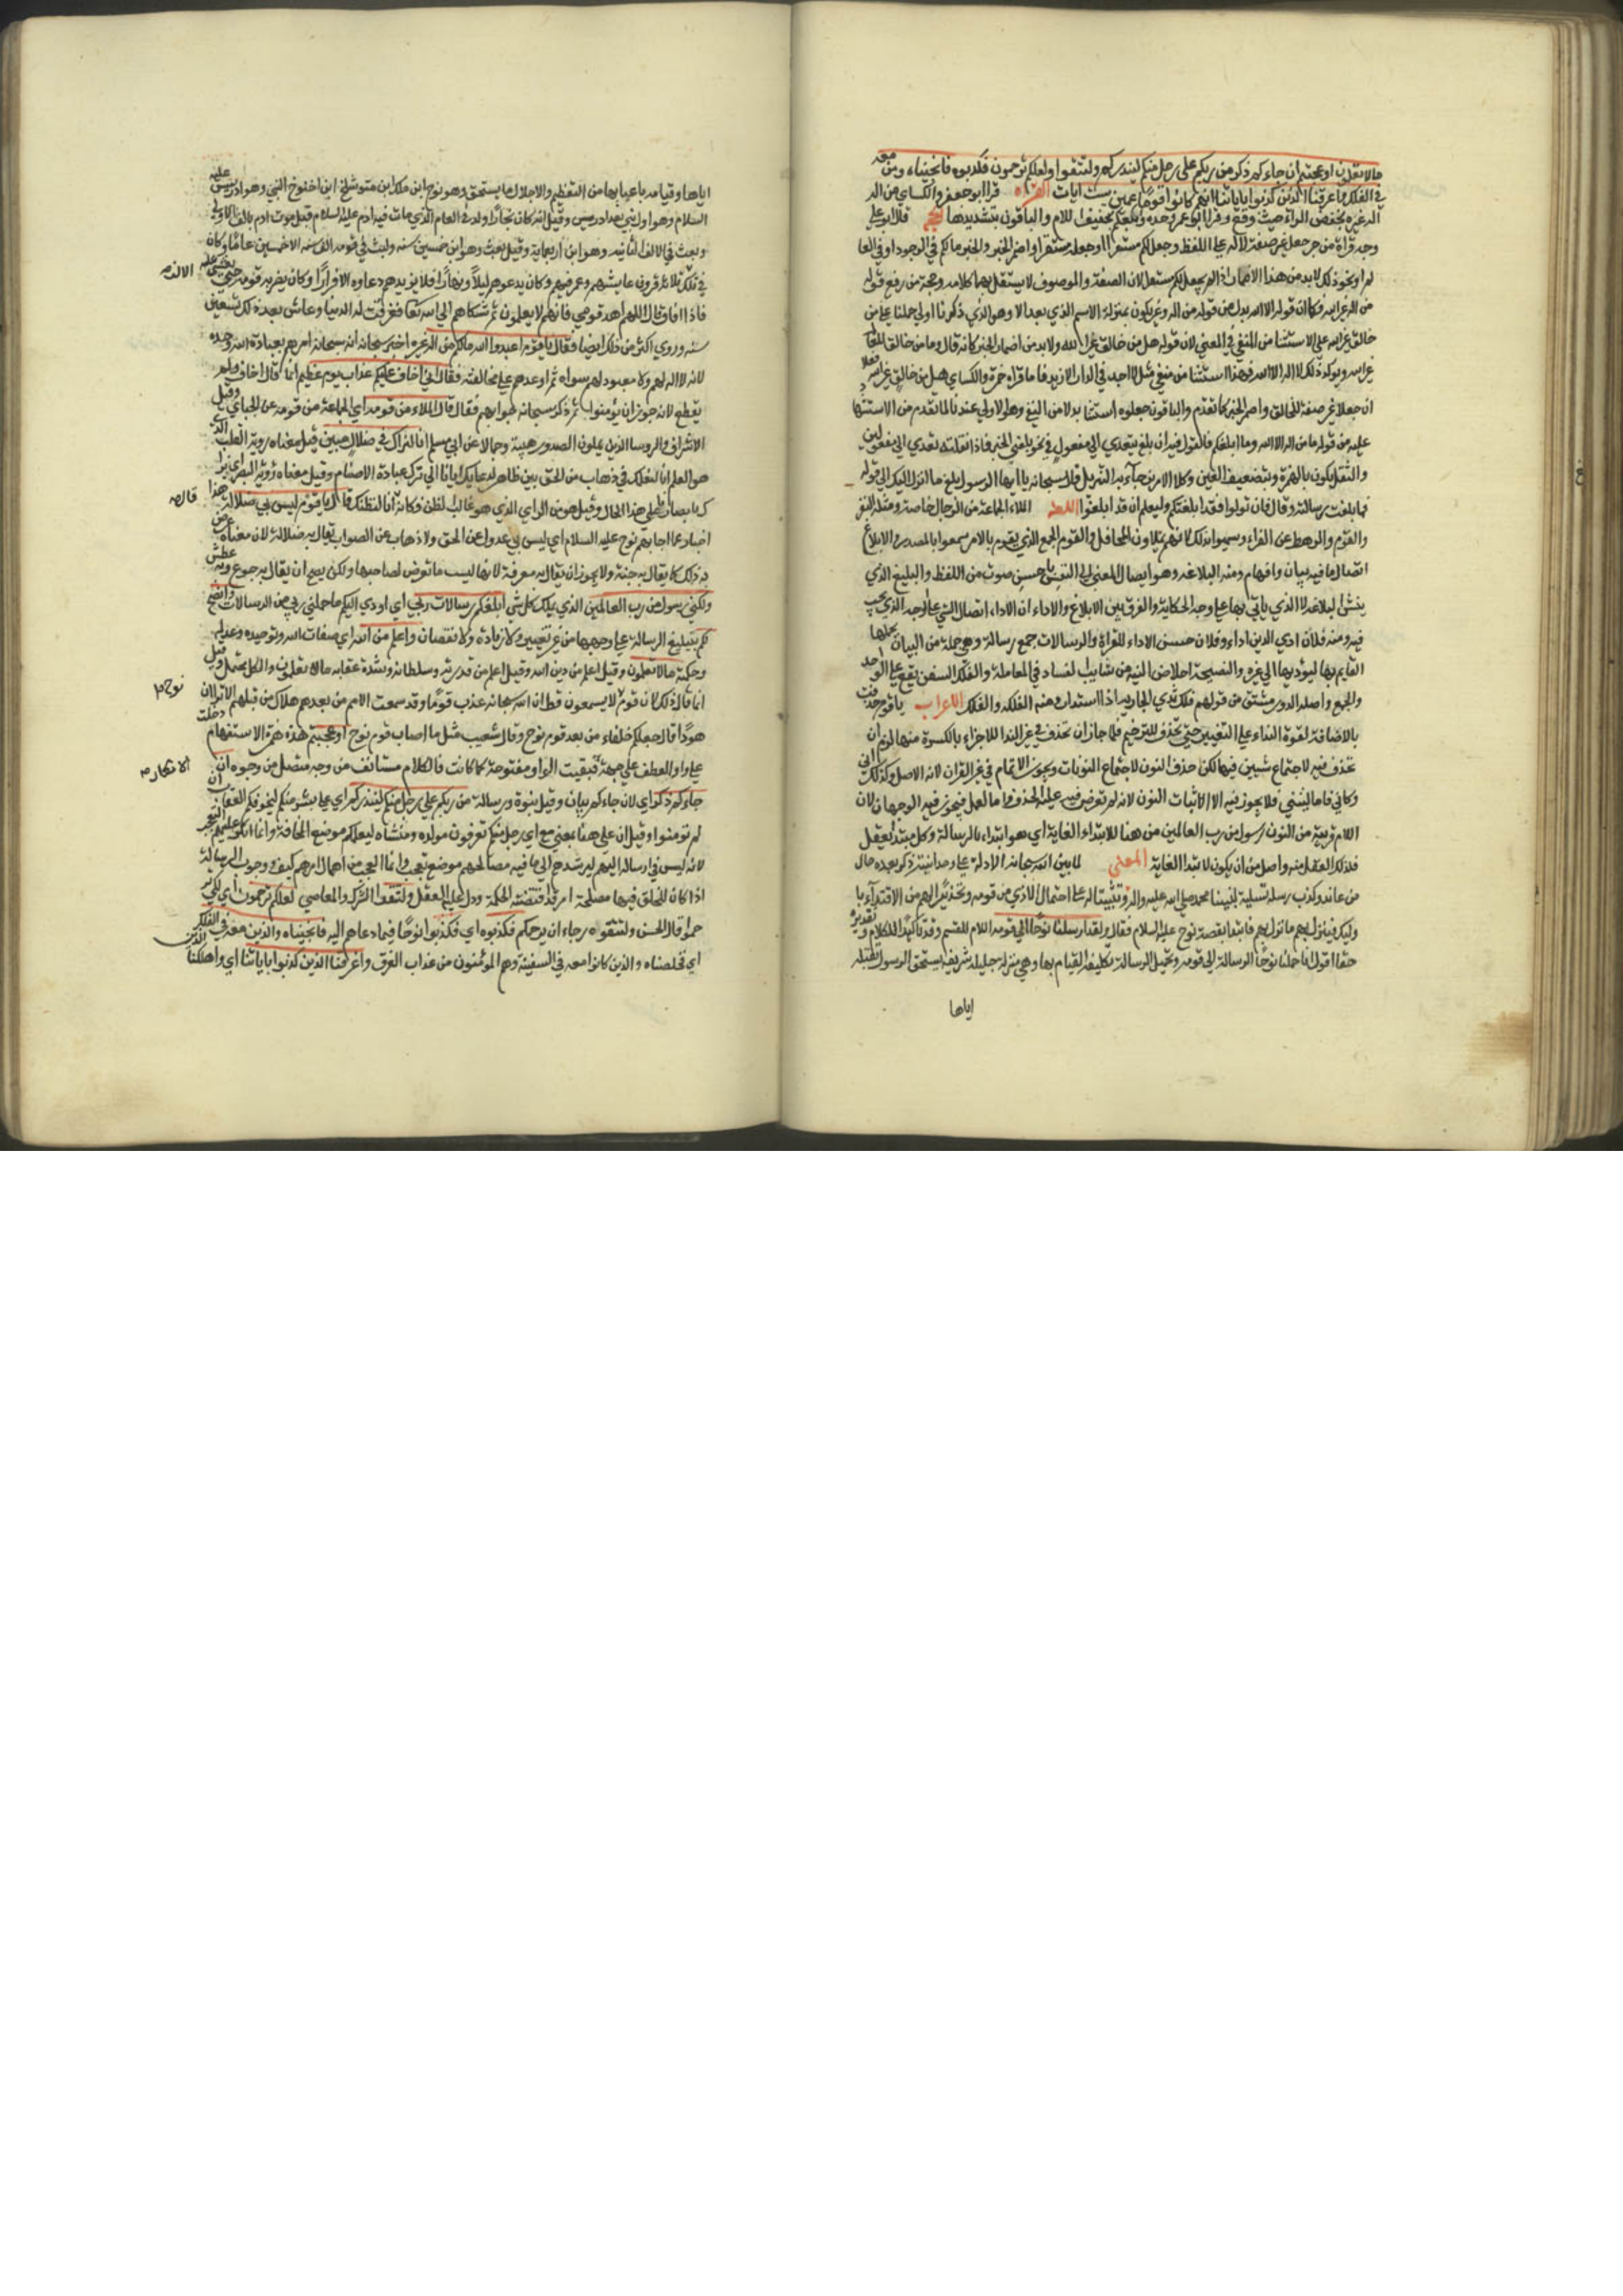 مالا تعلمون او عجبتم ان جاءكم ذكر من ربكم على رجل منكم لينذركم ولتتقوا ولعلكم ترحمون فكذبوه فانجيناه ومن معه
في الفلك واغرقنا الذين كذبوا باياتنا انهم كانوا قوما عمين ست ايات القراءة قرا ابو جعفر والكسائي من اله
اله غيره بخفض الراء حيث وقع وقرا ابو عمرو وحده وابلغكم بتخفيف اللام والباقون بتشديدها الحجة قال ابو علي
وجه قراة من جر جعل غير صفة لاله على اللفظ وجعل لكم مستقرا او جعله مستقرا واضمر الخبر والخبر مالكم في الوجود او في العالم
او نحو ذلك لا بد من هذا الاضمار اذا لم يجعل لكم مستقرا لان الصفة والموصوف لا يستقل بهما كلام وحجة من رفع قوله
من اله غير الله فكان قوله الا الله بدل من قوله من اله وغير يكون بمنزلة الاسم الذي بعد الا وهو الذي ذكرنا اولى حملنا على من
خالق غير الله على الاستثنا من المنفي في المعنى لان قوله هل من خالق غير الله ولا بد من اضمار الخبر كانه قال وما من خالق للعالم
غير الله ويوكد ذلك لا اله الا الله فهذا استثنا من منفي مثل لا احد في الدار الا زيد فاما قراة حمزة والكسائي هل من خالق غير الله فعلى
ان جعلا غير صفة للخالق واضمر الخبر كما تقدم والباقون جعلوه استثنا بدلا من النفي وهو الاولى عندنا لما تقدم من الاستثنا
عليه من قوله ما من اله الا الله وما ابلغكم فالقول فيه ان بلغ يتعدى الى مفعول في نحو بلغني الخبر فاذا نقلته تعدى الى مفعولين
والنقل يكون بالهمزة وبتضعيف العين وكلا الامرين جاء به التنزيل قال سبحانه يا ايها الرسول بلغ ما انزل اليك الى قوله
فما بلغت رسالته وقال فان تولوا فقد ابلغتكم وليعلم ان قد ابلغوا اللغة الملاء الجماعة من الرجال خاصة ومثله النفر
والقوم والرهط عن الفراء وسموا بذلك لانهم يملاون المحافل والقوم الجمع الذي يقوم بالامر سموا بالمصدر والابلاغ
اتصال ما فيه بيان وافهام ومنه البلاغة وهو ايصال المعنى الى النفس باحسن صوت من اللفظ والبليغ الذي
ينشئ البلاغة لا الذي ياتي بها على وجه الحكاية والفرق بين الابلاغ والاداء ان الاداء اتصال الشي على الوجه الذي يجب
فيه ومنه فلان ادى الدين اداء وفلان حسن الاداء للقراة والرسالات جمع رسالة وهي جملة من البيان يحملها
القايم بها ليؤديها الى غيره والنصيحة اخلاص النية من شايب الفساد في المعاملة والفلك السفن يقع على الواحد
والجمع واصله الدور مشتق من قولهم فلك ثدي الجارية اذا استدار ومنه الفلكة والفلك الاعراب يا قوم حذفت
بالاضافة لقوة النداء على التغيير حتى يحذف للترخيم فلما جاز ان تحذف في غير الندا للاجزاء بالكسرة منها لزم ان
تحذف فيه لاجتماع شيين فيها لكن حذف النون لاجتماع النونات ويجوز الاتمام في غير القران لانه الاصل وكذلك اني
وكاني فاما ليتني فلا يجوز فيه الا اثبات النون لانه لم تعرض فيه علة الحذف واما لعل فيجوز فيه الوجهان لان
اللام قريبة من النون رسول من رب العالمين من هنا للابتداء الغاية اي هو ابتداء بالرسالة وكل مبتدا بفعل
فلذلك الفعل منه واصل من ان يكون لابتدا الغاية المعنى لما بين الله سبحانه الادلة على وحدانيته ذكر بعده حال
من عاند وكذب رسله تسلية لنبينا محمد صلى الله عليه واله وتثبيتا له على احتمال الاذى من قومه وتحذيرا لهم من الاقتداء بها
وليك فينزل بهم ما نزل بهم فابتدا بقصة نوح عليه السلام فقال ولقد ارسلنا نوحا الى قومه اللام للقسم وقد تاكيد للكلام وتقديره
حقا اقول انا حملنا نوحا الرسالة الى قومه وتحميل الرسالة تكليفه القيام بها وهي منزلة جليلة شريفة يستحق الرسول بتقبله
اياها
اياها وقيامه باعبايها من التعظيم والاجلال ما يستحق وهو نوح ابن ملك ابن متوشلخ ابن اخنوخ النبي وهو ادريس عليه
السلام وهو اول نبي بعد ادريس وقيل انه كان نجارا وولد في العام الذي مات فيه ادم عليه السلام قبل موت ادم بالف الاولى
وبعث في الالف الثانيه وهو ابن اربعماية وقيل بعث وهو ابن خمسين سنه ولبث في قومه الف سنه الا خمسين عاما وكان
في تلك ثلاثة قرون عايشهم وعمر فيهم وكان يدعوهم ليلا ونهارا فلا يزيدهم دعاوه الا فرارا وكان يضربه قومه حتى يغشى عليه
فاذا افاق قال اللهم اهد قومي فانهم لا يعلمون ثم شكاهم الى الله تعالى فغرقت له الدنيا وعاش بعد ذلك تسعين
سنه وروي اكثر من ذلك ايضا فقال يا قوم اعبدوا الله مالكم من اله غيره اخبر سبحانه انه سبحانه امرهم بعبادة الله وحده
لانه لا اله لهم ولا معبود لهم سواه ثم اوعدهم على مخالفته فقال اني اخاف عليكم عذاب يوم عظيم انما قال اخاف ولم
يقطع لانه جوز ان يؤمنوا ثم ذكر سبحانه جوابهم فقال قال الملاء من قومه اي الجماعة من قومه عن الجبائي وقيل
الاشراف والروسا الذين يملون الصدور هيبة وجمالا عن ابي مسلم انا لنراك في ضلال مبين قيل معناه روية القلب الذي
هو العلم انا لنعلمك في ذهاب من الحق بين ظاهر لدعايك ايانا الى ترك عبادة الاصنام وقيل معناه رؤية البصر اي نراك
بابصارنا على هذا الحال وقيل هو من الراي الذي هو غالب الظن فكانه انا لنظنك قال يا قوم ليس بي ضلالة هذا
اخبار عما اجابهم نوح عليه السلام اي ليس بي عدول عن الحق ولا ذهاب عن الصواب يقال به ضلالة لان معناه عرض
به ذلك كما يقال به جنة ولا يجوز ان يقال به معرفة لانها ليست ما تعرض لصاحبها ولكن يصح ان يقال به جوع وبه عطش
ولكني رسول من رب العالمين الذي يملك كل شي ابلغكم رسالات ربي اي اودي اليكم ما حملني ربي من الرسالات وانصح
لكم بتبليغ الرسالة على وجهها من غير تغيير ولا زيادة ولا نقصان واعلم من الله اي صفات الله وتوحيده وعدله
وحكمته ما لا تعلمون وقيل اعلم من دين الله وقيل اعلم من قدرته وسلطانه وشدة عقابه مالا تعلمون والكل يحتمل وقيل
انما قال ذلك لان قوم لا يسمعون قط ان الله سبحانه عذب قوما وقد سمعت الامم من بعدهم هلاك من قبلهم الا ترى ان
هودا قال جعلكم خلفاء من بعد قوم نوح وقال شعيب مثل ما اصاب قوم نوح او عجبتم هذه همزة الاستفهام دخلت
على واو العطف على جهة فبقيت الواو مفتوحة كما كانت فالكلام مستانف من وجه متصل من وجوه ان
جاءكم ذكر اي لان جاءكم بيان وقيل نبوة ورسالة من ربكم على رجل منكم لينذركم اي على بشر منكم ليخوفكم العقاب ان
لم تومنوا وقيل ان على هنا بمعنى مع اي مع رجل منكم تعرفون مولده ومنشاه ليعلمكم موضع المخافة وانما انكر عليهم التعجب
لانه ليس في ارساله اليهم ليرشدهم الى ما فيه مصالحهم موضع تعجب وانما العجب من اهمال امرهم كيف ووجوب الرسالة
اذا كان للخلق فيها مصلحة امر قد اقتضته الحكمة ودل عليه العقل ولتتقوا الشرك والمعاصي لعلكم ترحمون اي لكي
ترحموا قال الحسن ولتتقوه رجاء ان يرحمكم فكذبوه اي فكذبوا نوحا فيما دعاهم اليه فانجيناه والذين معه في الفلك
اي فخلصناه والذين كانوا معه في السفينة وهم المؤمنون من عذاب الغرق واغرقنا الذين كذبوا باياتنا اي واهلكنا
قال
نوح
الانكار
الذين